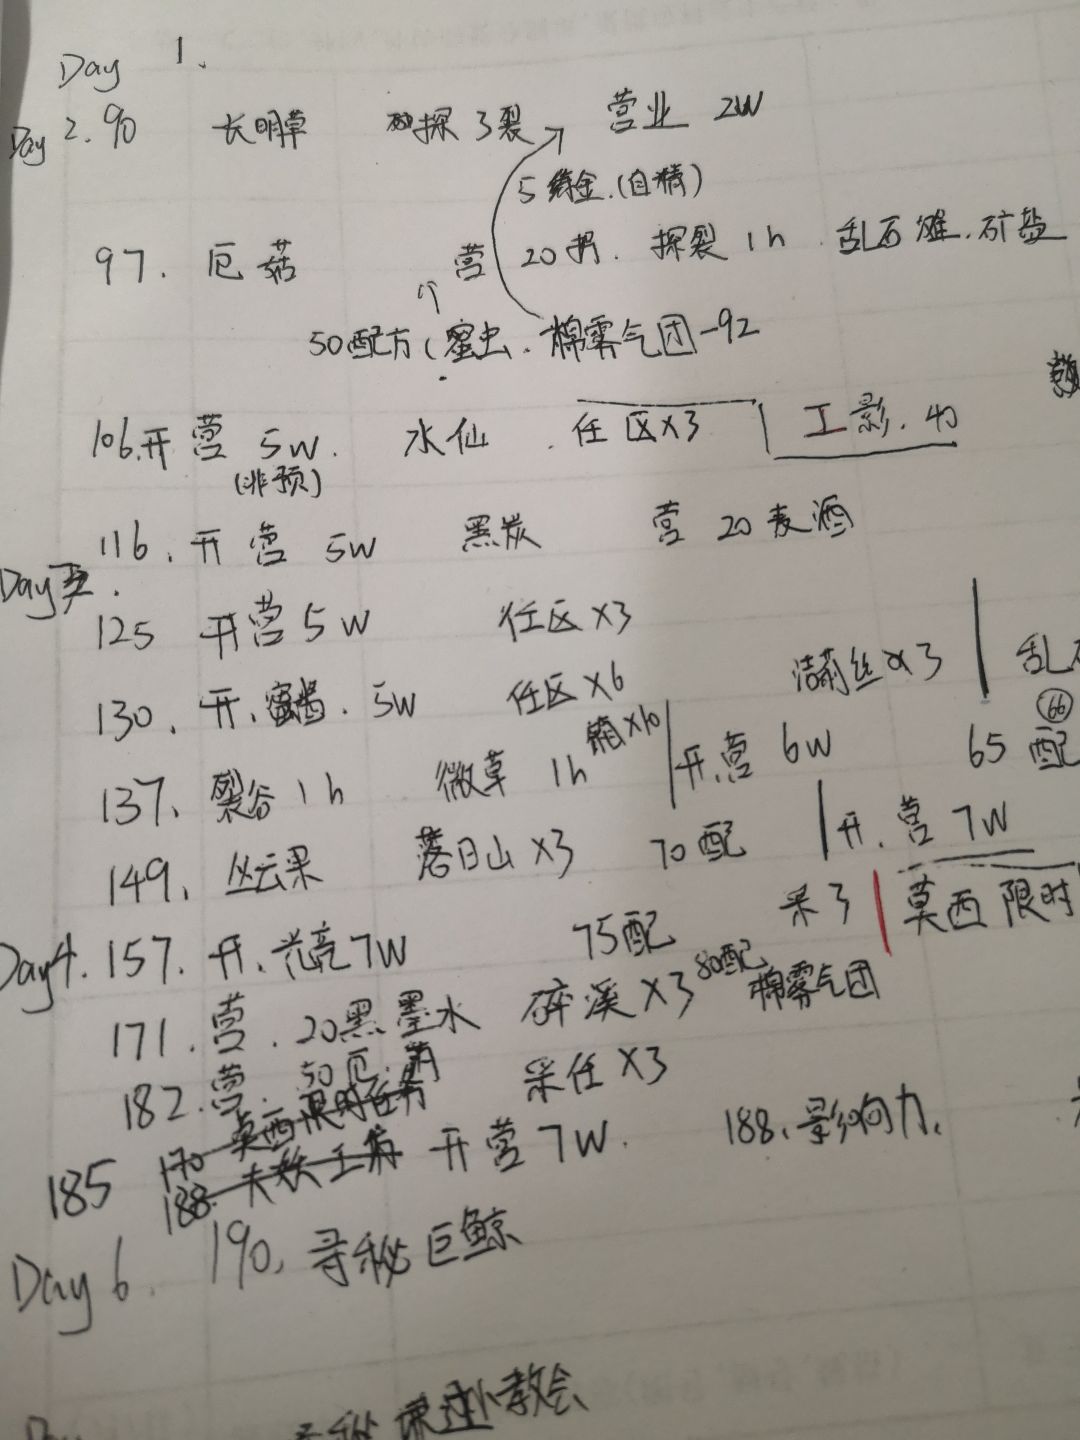 Day 1.
Day 2. 90 长明草 探了裂 营业 2W
5 (白精)
97. 厄菇 营 20 探裂 1h 乱石滩. 矿盐
50配方 (蜜虫. 棉雾气团-92
106. 开营 5W. 水仙 任区×3 工影.
(非预)
116. 开营 5W 黑炭 营 20麦酒
Day
125 开营 5W 任区×3
130. 开. 蜜酱. 5W 任区×6 洁荊丝×3 乱
137. 裂谷 1h 微草 1h 箱×10 开.营 6W 65 配
66
149. 丛云果 落日山×3 70配 开.营 7W
Day4. 157. 开. 7W 75配 采了 莫西 限时
171. 营. 20黑墨水 碎溪×3 80配 棉雾气团
182. 营. 50厄 采任×3
170 莫西限时任务
185 188 开营 7W. 188. 影响力.
Day 6. 190. 寻秘巨鲸
教会